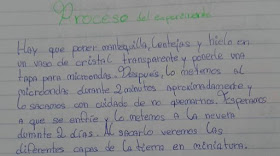 Proceso del experimento
Hay que poner mantequilla, lentejas y hielo en
un vaso de cristal transparente y ponerle una
tapa para microondas. Después, lo metemos al
microondas durante 2 minutos aproximadamente y
lo sacamos con cuidado de no quemarnos. Esperamos
a que se enfríe y lo metemos a la nevera
durante 2 días. Al sacarlo veremos las
diferentes capas de la tierra en miniatura.